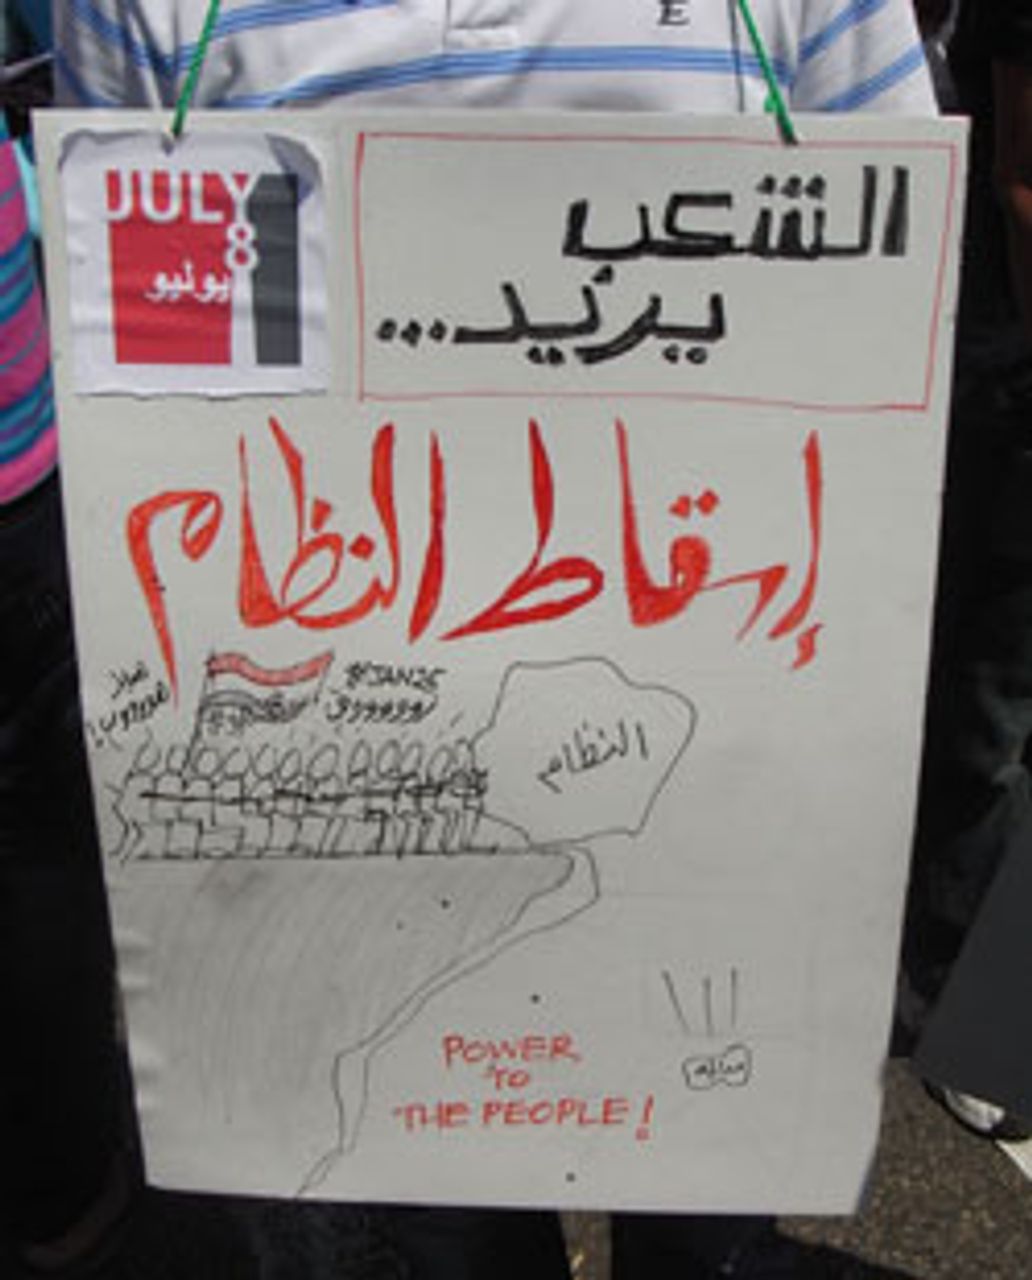 E
JULY
8
يوليو
الشعب
يريد...
إسقاط النظام
#JAN25
النظام
POWER
TO
THE PEOPLE!